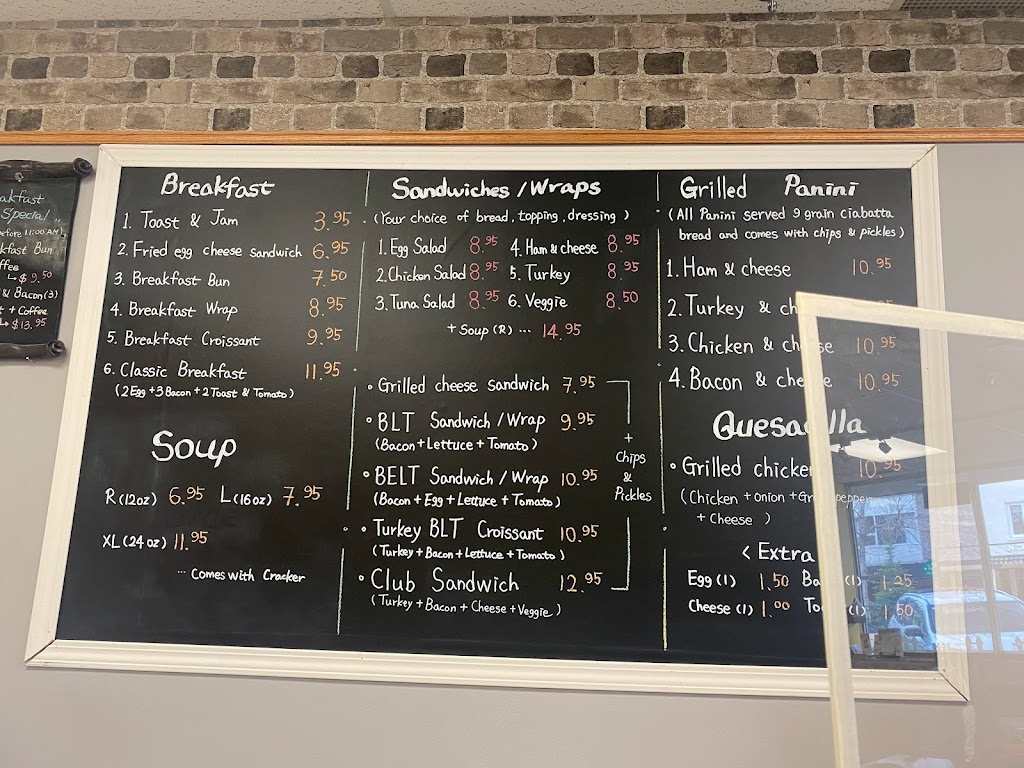 akfast
Special
efore 11:00 AM)
kfast Bun
ffee
↳ $9.50
& Bacon(3)
t + Coffee
↳ $13.95
Breakfast
1. Toast & Jam 3.95
2. Fried egg cheese sandwich 6.95
3. Breakfast Bun 7.50
4. Breakfast Wrap 8.95
5. Breakfast Croissant 9.95
6. Classic Breakfast 11.95
(2 Egg + 3 Bacon + 2 Toast & Tomato)
Soup
R (12oz) 6.95 L (16oz) 7.95
XL (24oz) 11.95
... Comes with Cracker
Sandwiches / Wraps
(Your choice of bread, topping, dressing)
1. Egg Salad 8.95 4. Ham & cheese 8.95
2. Chicken Salad 8.95 5. Turkey 8.95
3. Tuna Salad 8.95 6. Veggie 8.50
+ Soup (R) ... 14.95
• Grilled cheese sandwich 7.95
• BLT Sandwich / Wrap 9.95
(Bacon + Lettuce + Tomato)
• BELT Sandwich / Wrap 10.95
(Bacon + Egg + Lettuce + Tomato)
• Turkey BLT Croissant 10.95
(Turkey + Bacon + Lettuce + Tomato)
• Club Sandwich 12.95
(Turkey + Bacon + Cheese + Veggie)
+
Chips
&
Pickles
Grilled Panini
(All Panini served 9 grain ciabatta
bread and comes with chips & pickles)
1. Ham & cheese 10.95
2. Turkey & ch
3. Chicken & cheese 10.95
4. Bacon & cheese 10.95
Quesadilla
• Grilled chicken 10.95
(Chicken + onion + Green pepper
+ Cheese)
< Extra
Egg (1) 1.50 Ba (1) 1.25
Cheese (1) 1.00 To (1) 1.50